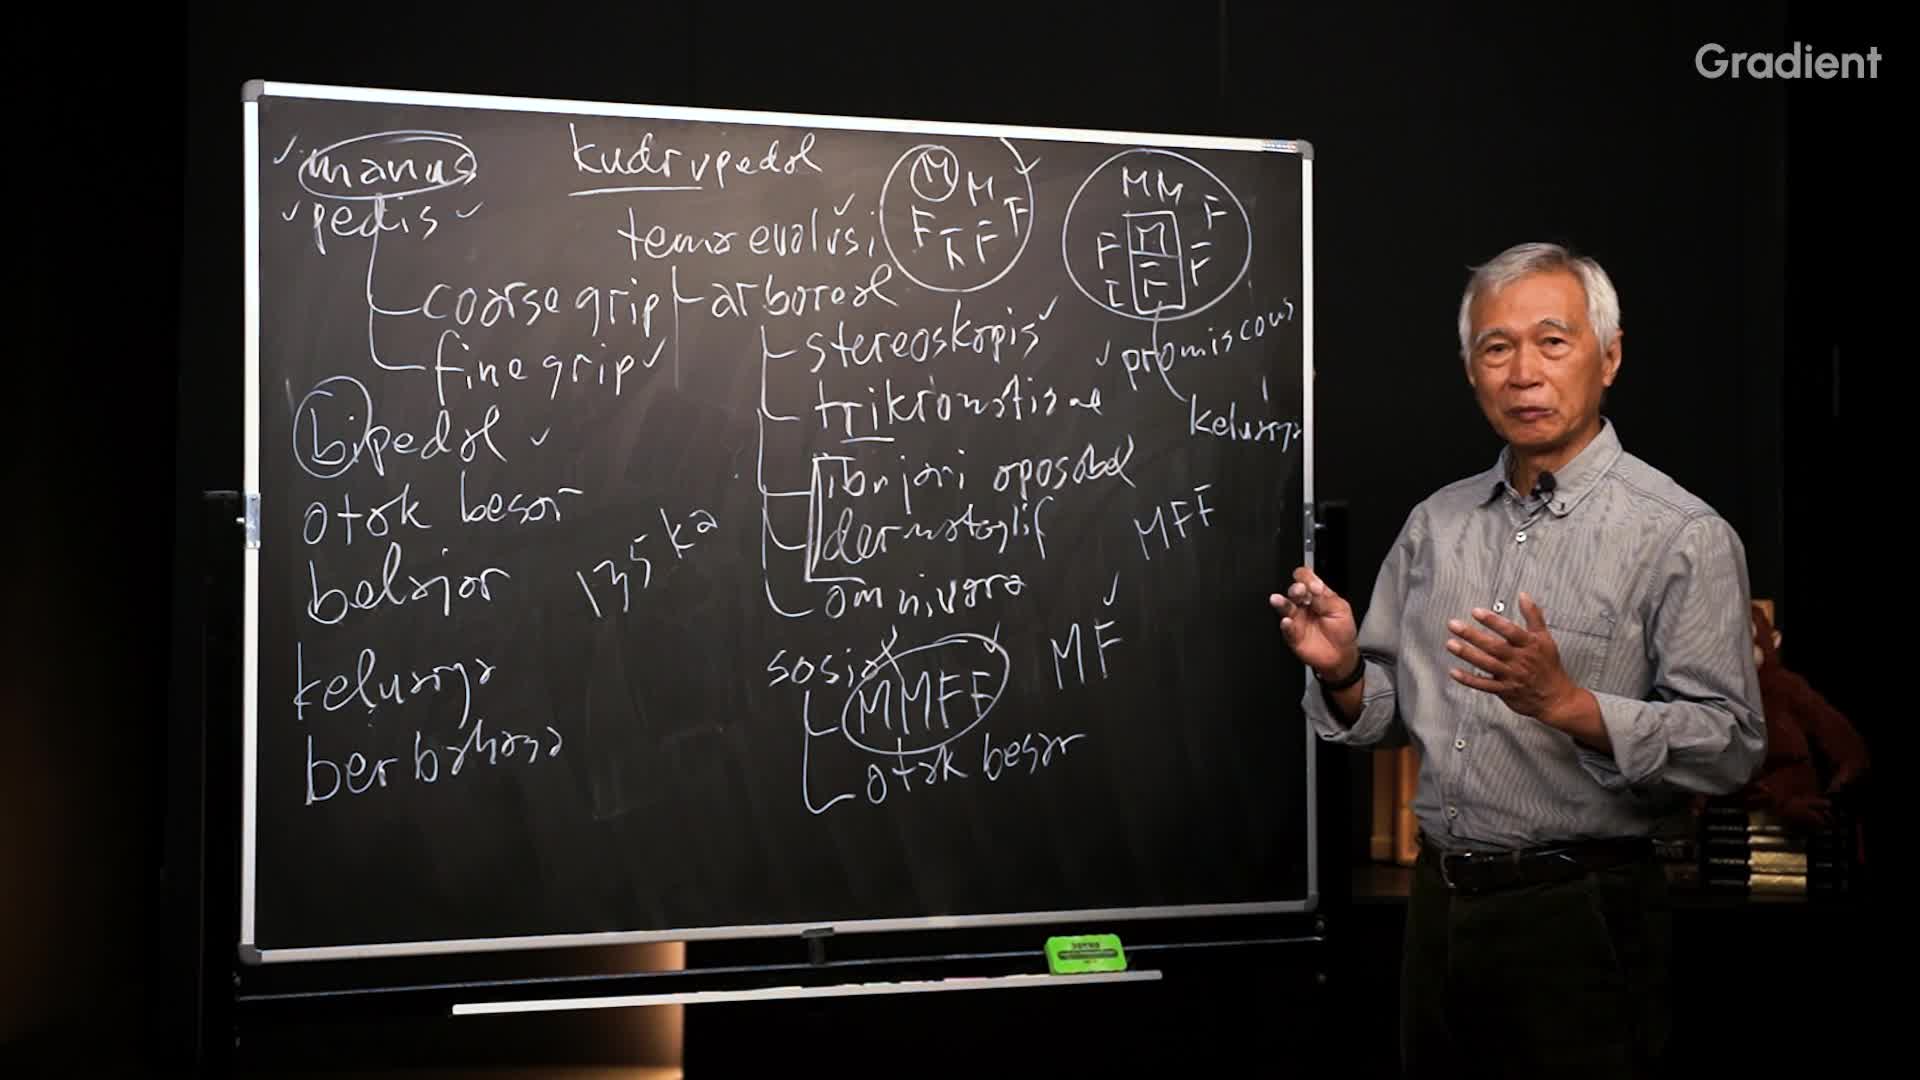 Gradient
manus
pedis
coarse grip
fine grip
bipedal
otak besar
belajar
keluarga
berbahasa
135 ka
kudrupedal
tema evolusi
arboreal
stereoskopis
trikromatisme
ibu jari oposabel
dermatoglif
omnivora
sosial
MMFF
otak besar
M M
F F F
M M
F M F
F F
promiscous
keluarga
MFF
MF